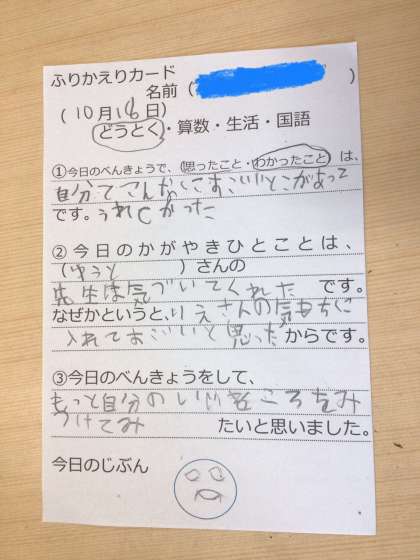 ふりかえりカード
名前（　　　）
（10月18日）
どうとく・算数・生活・国語
①今日のべんきょうで、（思ったこと・わかったこと）は、
自分でこんなにすごいいとこがあって
です。うれしかった
②今日のかがやきひとことは、
（ゆうと　　　）さんの
先生は気づいてくれた　です。
なぜかというと、りえさんの気もちに
入れてすごいと思ったからです。
③今日のべんきょうをして、
もっと自分のいいところをみ
つけてみ　たいと思いました。
今日のじぶん